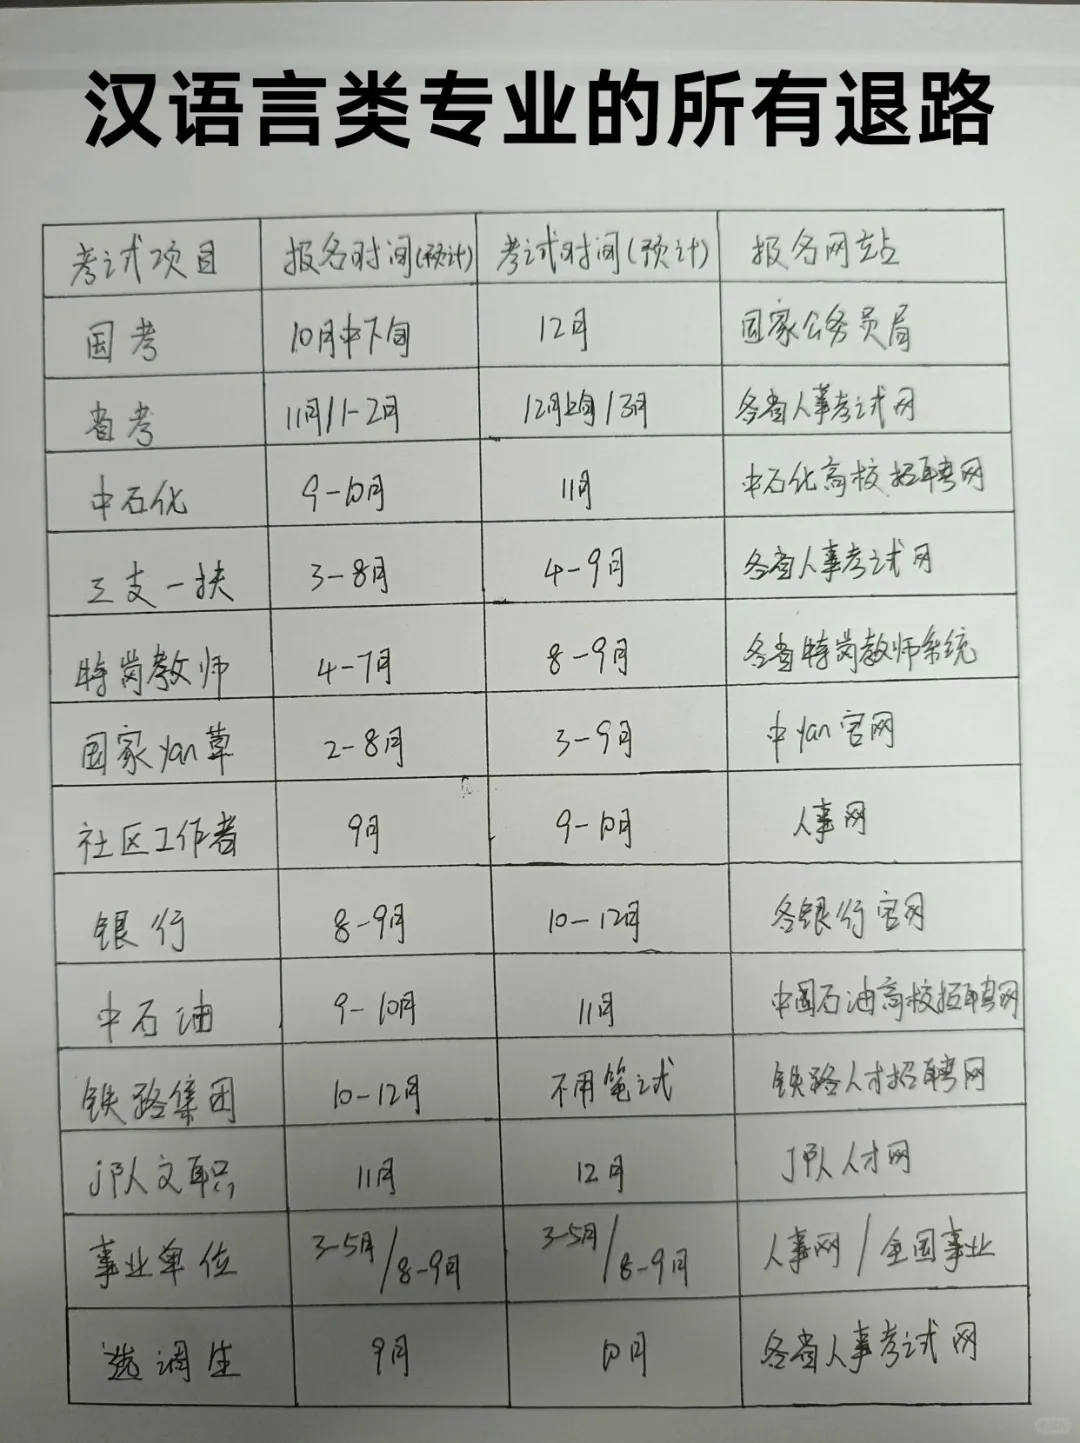 汉语言类专业的所有退路
考试项目 报名时间(预计) 考试时间(预计) 报名网站
国考 10月中下旬 12月 国家公务员局
省考 11月/1-2月 12月上旬/3月 各省人事考试网
中石化 9-10月 11月 中石化高校招聘网
三支一扶 3-8月 4-9月 各省人事考试网
特岗教师 4-7月 8-9月 各省特岗教师系统
国家yan草 2-8月 3-9月 中yan官网
社区工作者 9月 9-10月 人事网
银行 8-9月 10-12月 各银行官网
中石油 9-10月 11月 中国石油高校招聘网
铁路集团 10-12月 不用笔试 铁路人才招聘网
jP队文职 11月 12月 JP队人才网
事业单位 3-5月/8-9月 3-5月/8-9月 人事网/全国事业
选调生 9月 10月 各省人事考试网